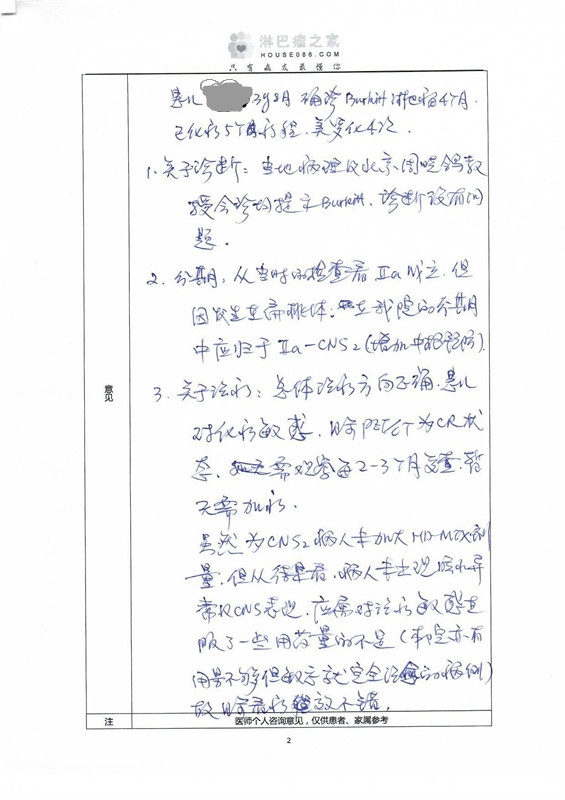 淋巴瘤之家
HOUSE086.COM
只有病友最懂你
患儿 3岁8月 确诊Burkitt淋巴瘤4个月.
已化疗5个疗程, 美罗化4次.
1. 关于诊断: 当地病理及北京周晓鸽教
授会诊均提示Burkitt, 诊断没有问
题.
2. 分期: 从当时的检查看 IIa 成立, 但
因发生在扁桃体, 在我院的分期
中应归于 IIa-CNS2 (增加中枢预防).
3. 关于治疗: 总体治疗方向正确, 患儿
对化疗敏感, 目前PETCT为CR状
态, 需观察每2-3个月复查, 暂
无需加疗.
虽然为CNS2病人未加大HD-MTX剂
量, 但从结果看, 病人未出现脑水异
常及CNS表现, 应属对治疗敏感
了一些用药量的不足 (本院亦有
用量不够但敏感就完全治愈的病例)
故目前看疗效不错.
意见
注
医师个人咨询意见，仅供患者、家属参考
2